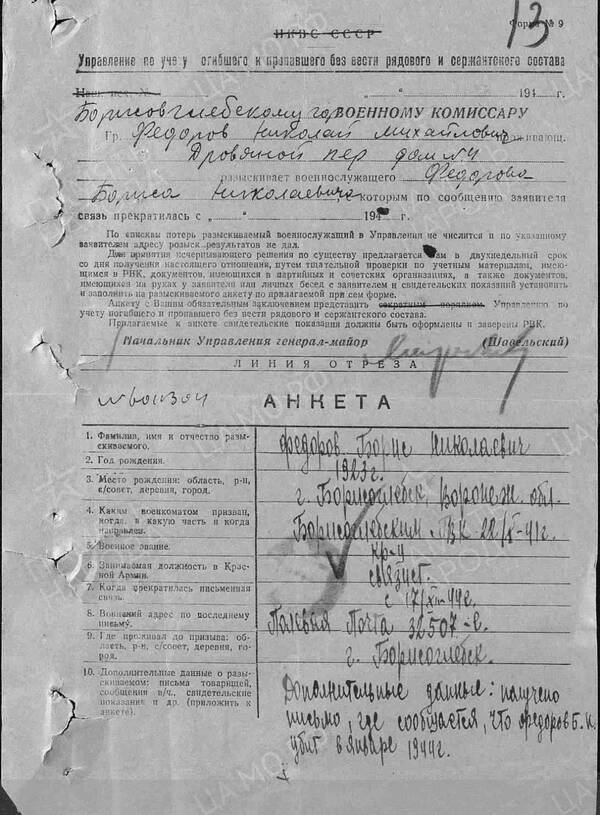 13
Форма № 9
НКВС СССР
Управление по учету погибшего и пропавшего без вести рядового и сержантского состава
" " 194 г.
Борисоглебскому гор ВОЕННОМУ КОМИССАРУ
Гр. Федоров Николай Михайлович проживающ.
Дровяной пер дом №4
разыскивает военнослужащего Федорова
Бориса Николаевича которым по сообщению заявителя
связь прекратилась с " " 194 г.
По спискам потерь разыскиваемый военнослужащий в Управлении не числится и по указанному
заявителем адресу розыск результатов не дал.
Для принятия исчерпывающего решения по существу предлагается Вам в двухнедельный срок
со дня получения настоящего отношения, путем тщательной проверки по учетным материалам, имею-
щимся в РВК, документов, имеющихся в партийных и советских организациях, а также документов,
имеющихся на руках у заявителя или личных бесед с заявителем и свидетельских показаний установить
и заполнить на разыскиваемого анкету по прилагаемой при сем форме.
Анкету с Вашим обязательным заключением представить секретным порядком Управлению по
учету погибшего и пропавшего без вести рядового и сержантского состава.
Прилагаемые к анкете свидетельские показания должны быть оформлены и заверены РВК.
Начальник Управления генерал-майор (Шавельский)
ЛИНИЯ ОТРЕЗА
АНКЕТА
1. Фамилия, имя и отчество разы-
скиваемого.
Федоров Борис Николаевич
2. Год рождения.
1923г.
3. Место рождения: область, р-н,
с/совет, деревня, город.
г. Борисоглебск, Воронеж. обл.
4. Каким военкоматом призван,
когда, в какую часть и когда
направлен.
Борисоглебским РВК 22/X-41г.
5. Военное звание.
кр-ц
6. Занимаемая должность в Крас-
ной Армии.
связист.
7. Когда прекратилась письменная
связь.
с 17/XII-44г.
8. Воинский адрес по последнему
письму.
Полевая Почта 32507-в.
9. Где проживал до призыва: об-
ласть, р-н, с/совет, деревня, го-
род.
г. Борисоглебск.
10. Дополнительные данные о разы-
скиваемом: письма товарищей,
сообщения в/ч., свидетельские
показания и др. (приложить к
анкете).
Дополнительные данные: получено
письмо, где сообщается, что Федоров Б. Н.
убит в январе 1944г.